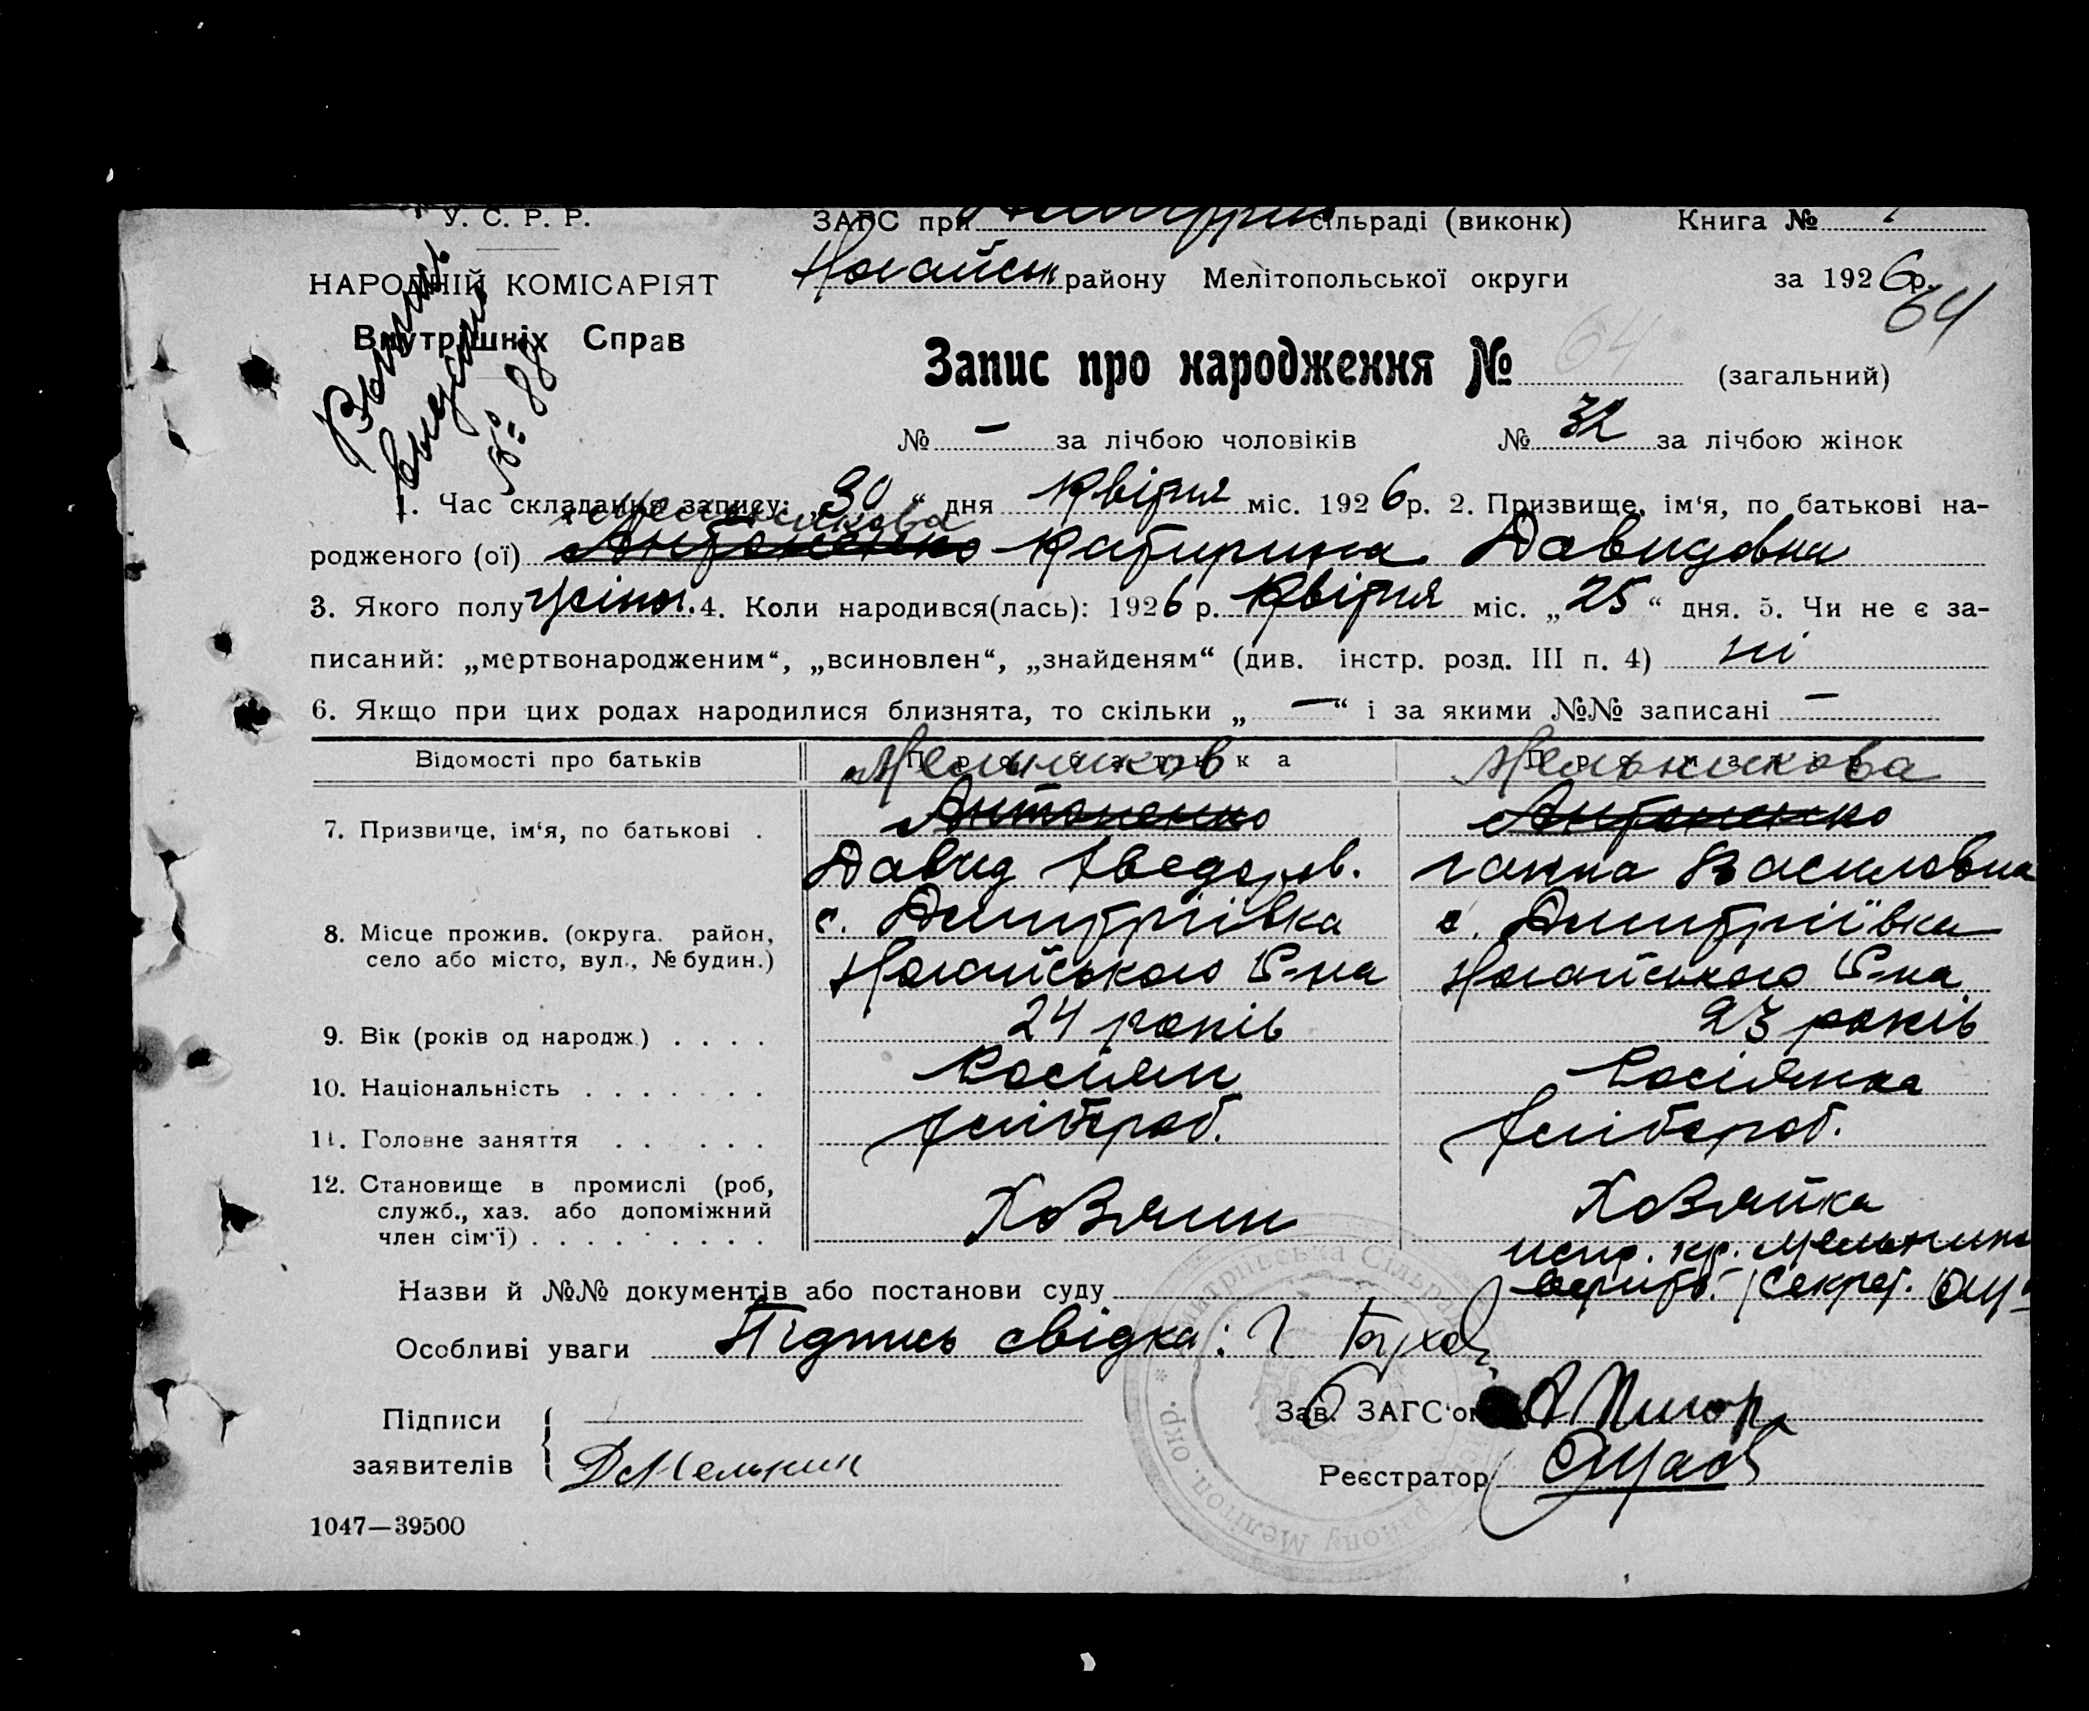 У. С. Р. Р.
НАРОДНІЙ КОМІСАРІЯТ
Внутрішніх Справ
Выпись
Выдана
№ 88
ЗАГС при сільраді (виконк) Книга №
Ногайськ району Мелітопольської округи за 1926р.
64
Запис про народження № 64 (загальний)
№ — за лічбою чоловіків № 32 за лічбою жінок
1. Час складання запису: „30“ дня Квітня міс. 1926р. 2. Призвище, ім‘я, по батькові на-
Мельникова
родженого (ої) Антоненко Катирина Давидовна
3. Якого полу жіноч. 4. Коли народився(лась): 1926 р. Квітня міс. „25“ дня. 5. Чи не є за-
писаний: „мертвонародженим“, „всиновлен“, „знайденям“ (див. інстр. розд. III п. 4) ні
6. Якщо при цих родах народилися близнята, то скільки „—“ і за якими №№ записані —
Відомості про батьків Про батька Про матір
Мельников Мельникова
Антоненко Антоненко
7. Призвище, ім‘я, по батькові .
Давид Хведоров. ганна Василовна
8. Місце прожив. (округа. район, с. Дмитріівка с. Дмитріївка
село або місто, вул., № будин.) Ногайського Р-на Ногайського Р-на
9. Вік (років од народж.) . . . . 24 років 23 років
10. Національність . . . . . . . Росіянин Росіянка
11. Головне заняття . . . . . . хлібороб. хлібороб.
12. Становище в промислі (роб,
служб., хаз. або допоміжний Хозяин Хозяйка
член сім‘ї) . . . . . . . . . .
испр. на Мельник
Назви й №№ документів або постанови суду верить. Секрет.
Особливі уваги Підпись свідка:
Підписи
заявителів Д Мельник
Зав. ЗАГС‘ом
Реєстратор
1047—39500
Дмитріївська Сільрада району Мелітоп. окр.